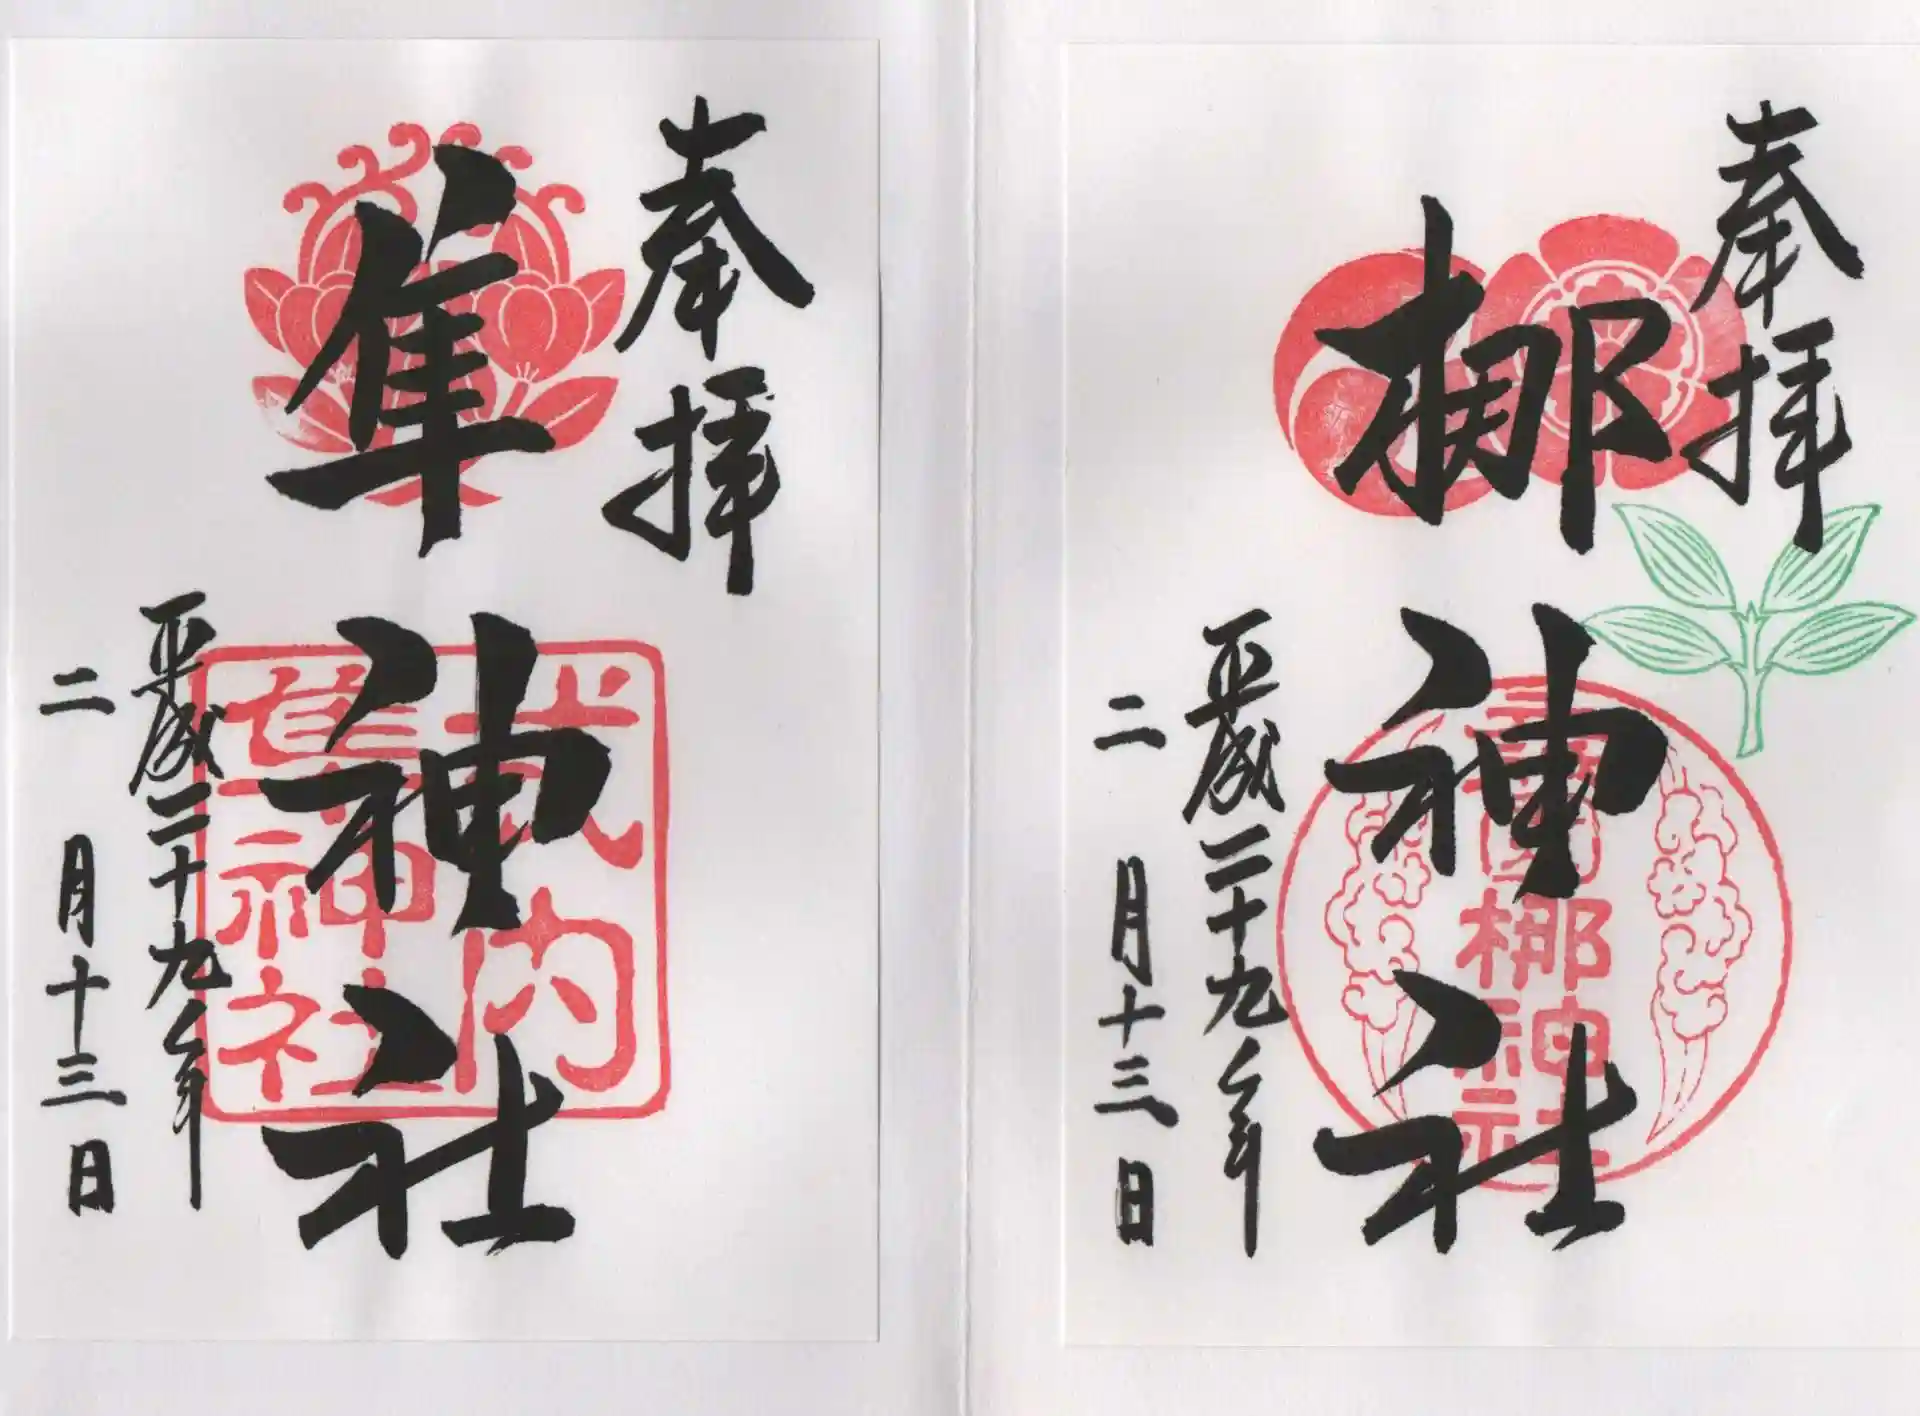 奉拝
梛神社
元祇園梛神社
平成二十九年
二月十三日
奉拝
隼神社
式内
隼神社
平成二十九年
二月十三日